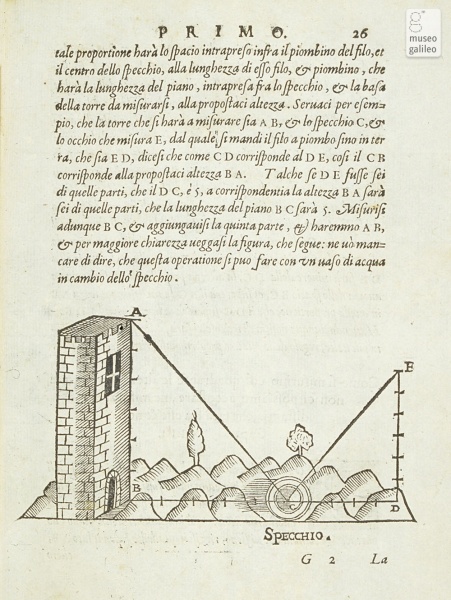 PRIMO. 26
museo
galileo
tale proportione harà lo spacio intrapreso infra il piombino del filo, et
il centro dello specchio, alla lunghezza di esso filo, & piombino, che
harà la lunghezza del piano, intrapresa fra lo specchio, & la basa
della torre da misurarsi, alla propostaci altezza. Seruaci per esem-
pio, che la torre che si harà a misurare sia AB, & lo specchio C, &
lo occhio che misura E, dal quale, si mandi il filo a piombo sino in ter
ra, che sia ED, dicesi che come CD corrisponde al DE, così il CB
corrisponde alla propostaci altezza BA. Talche se DE fusse sei
di quelle parti, che il DC, è 5, a corrispondentia la altezza BA sarà
sei di quelle parti, che la lunghezza del piano BC sarà 5. Misurisi
adunque BC, & aggiungauisi la quinta parte, & haremmo AB,
& per maggiore chiarezza ueggasi la figura, che segue: ne uò man-
care di dire, che questa operatione si puo fare con un uaso di acqua
in cambio dello specchio.
A
E
B
C
D
SPECCHIO.
G 2 La